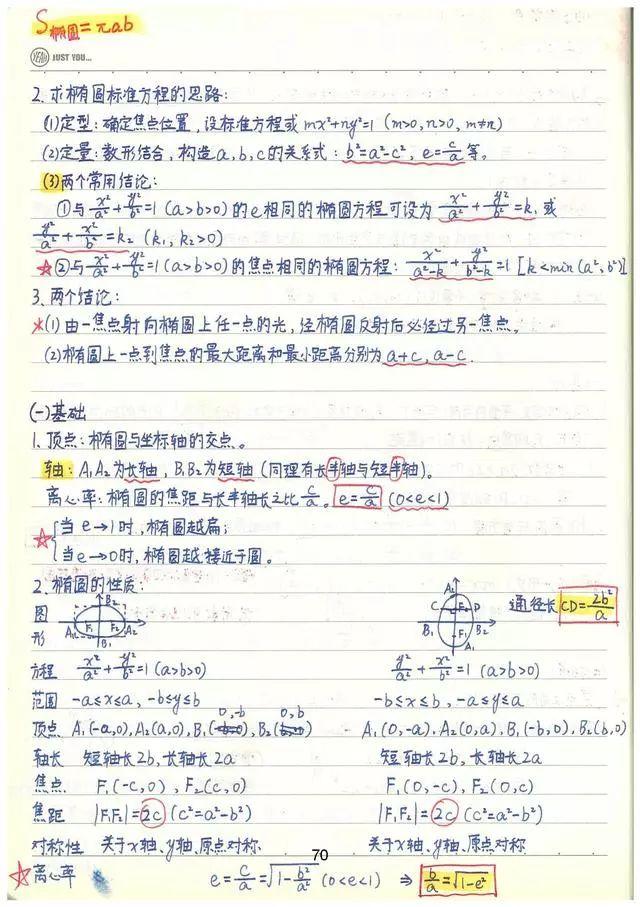 S椭圆=πab
YEAH JUST YOU...
2. 求椭圆标准方程的思路:
(1)定型:确定焦点位置,设标准方程或 mx²+ny²=1 (m>0, n>0, m≠n)
(2)定量:数形结合,构造a,b,c的关系式: b²=a²-c², e=c/a 等。
(3)两个常用结论:
①与 x²/a²+y²/b²=1 (a>b>0) 的e相同的椭圆方程可设为 x²/a²+y²/b²=k₁ 或
y²/a²+x²/b²=k₂ (k₁,k₂>0)
☆②与 x²/a²+y²/b²=1 (a>b>0) 的焦点相同的椭圆方程: x²/(a²-k)+y²/(b²-k)=1 [k<min(a²,b²)]
3. 两个结论:
☆(1)由一焦点射向椭圆上任一点的光,经椭圆反射后必经过另一焦点。
(2)椭圆上一点到焦点的最大距离和最小距离分别为 a+c, a-c.
(一)基础
1. 顶点:椭圆与坐标轴的交点。
轴: A₁A₂为长轴, B₁B₂为短轴 (同理有长半轴与短半轴)。
离心率:椭圆的焦距与长半轴长之比 c/a。 e=c/a (0<e<1)
☆{当 e→1 时,椭圆越扁;
当 e→0时,椭圆越接近于圆。
2. 椭圆的性质:
图形 A₁ F₁ F₂ A₂ B₂ B₁ A₂ C F₂ D B₁ B₂ F₁ A₁ 通径长 CD=2b²/a
方程 x²/a²+y²/b²=1 (a>b>0) y²/a²+x²/b²=1 (a>b>0)
范围 -a≤x≤a, -b≤y≤b -b≤x≤b, -a≤y≤a
顶点 A₁(-a,0), A₂(a,0), B₁(0,-b), B₂(0,b) A₁(0,-a), A₂(0,a), B₁(-b,0), B₂(b,0)
轴长 短轴长2b, 长轴长2a 短轴长2b, 长轴长2a
焦点 F₁(-c,0), F₂(c,0) F₁(0,-c), F₂(0,c)
焦距 |F₁F₂|=2c (c²=a²-b²) |F₁F₂|=2c (c²=a²-b²)
对称性 关于x轴、y轴、原点对称. 关于x轴、y轴、原点对称
70
☆离心率 e=c/a=√(1-b²/a²) (0<e<1) ⇒ b/a=√(1-e²)